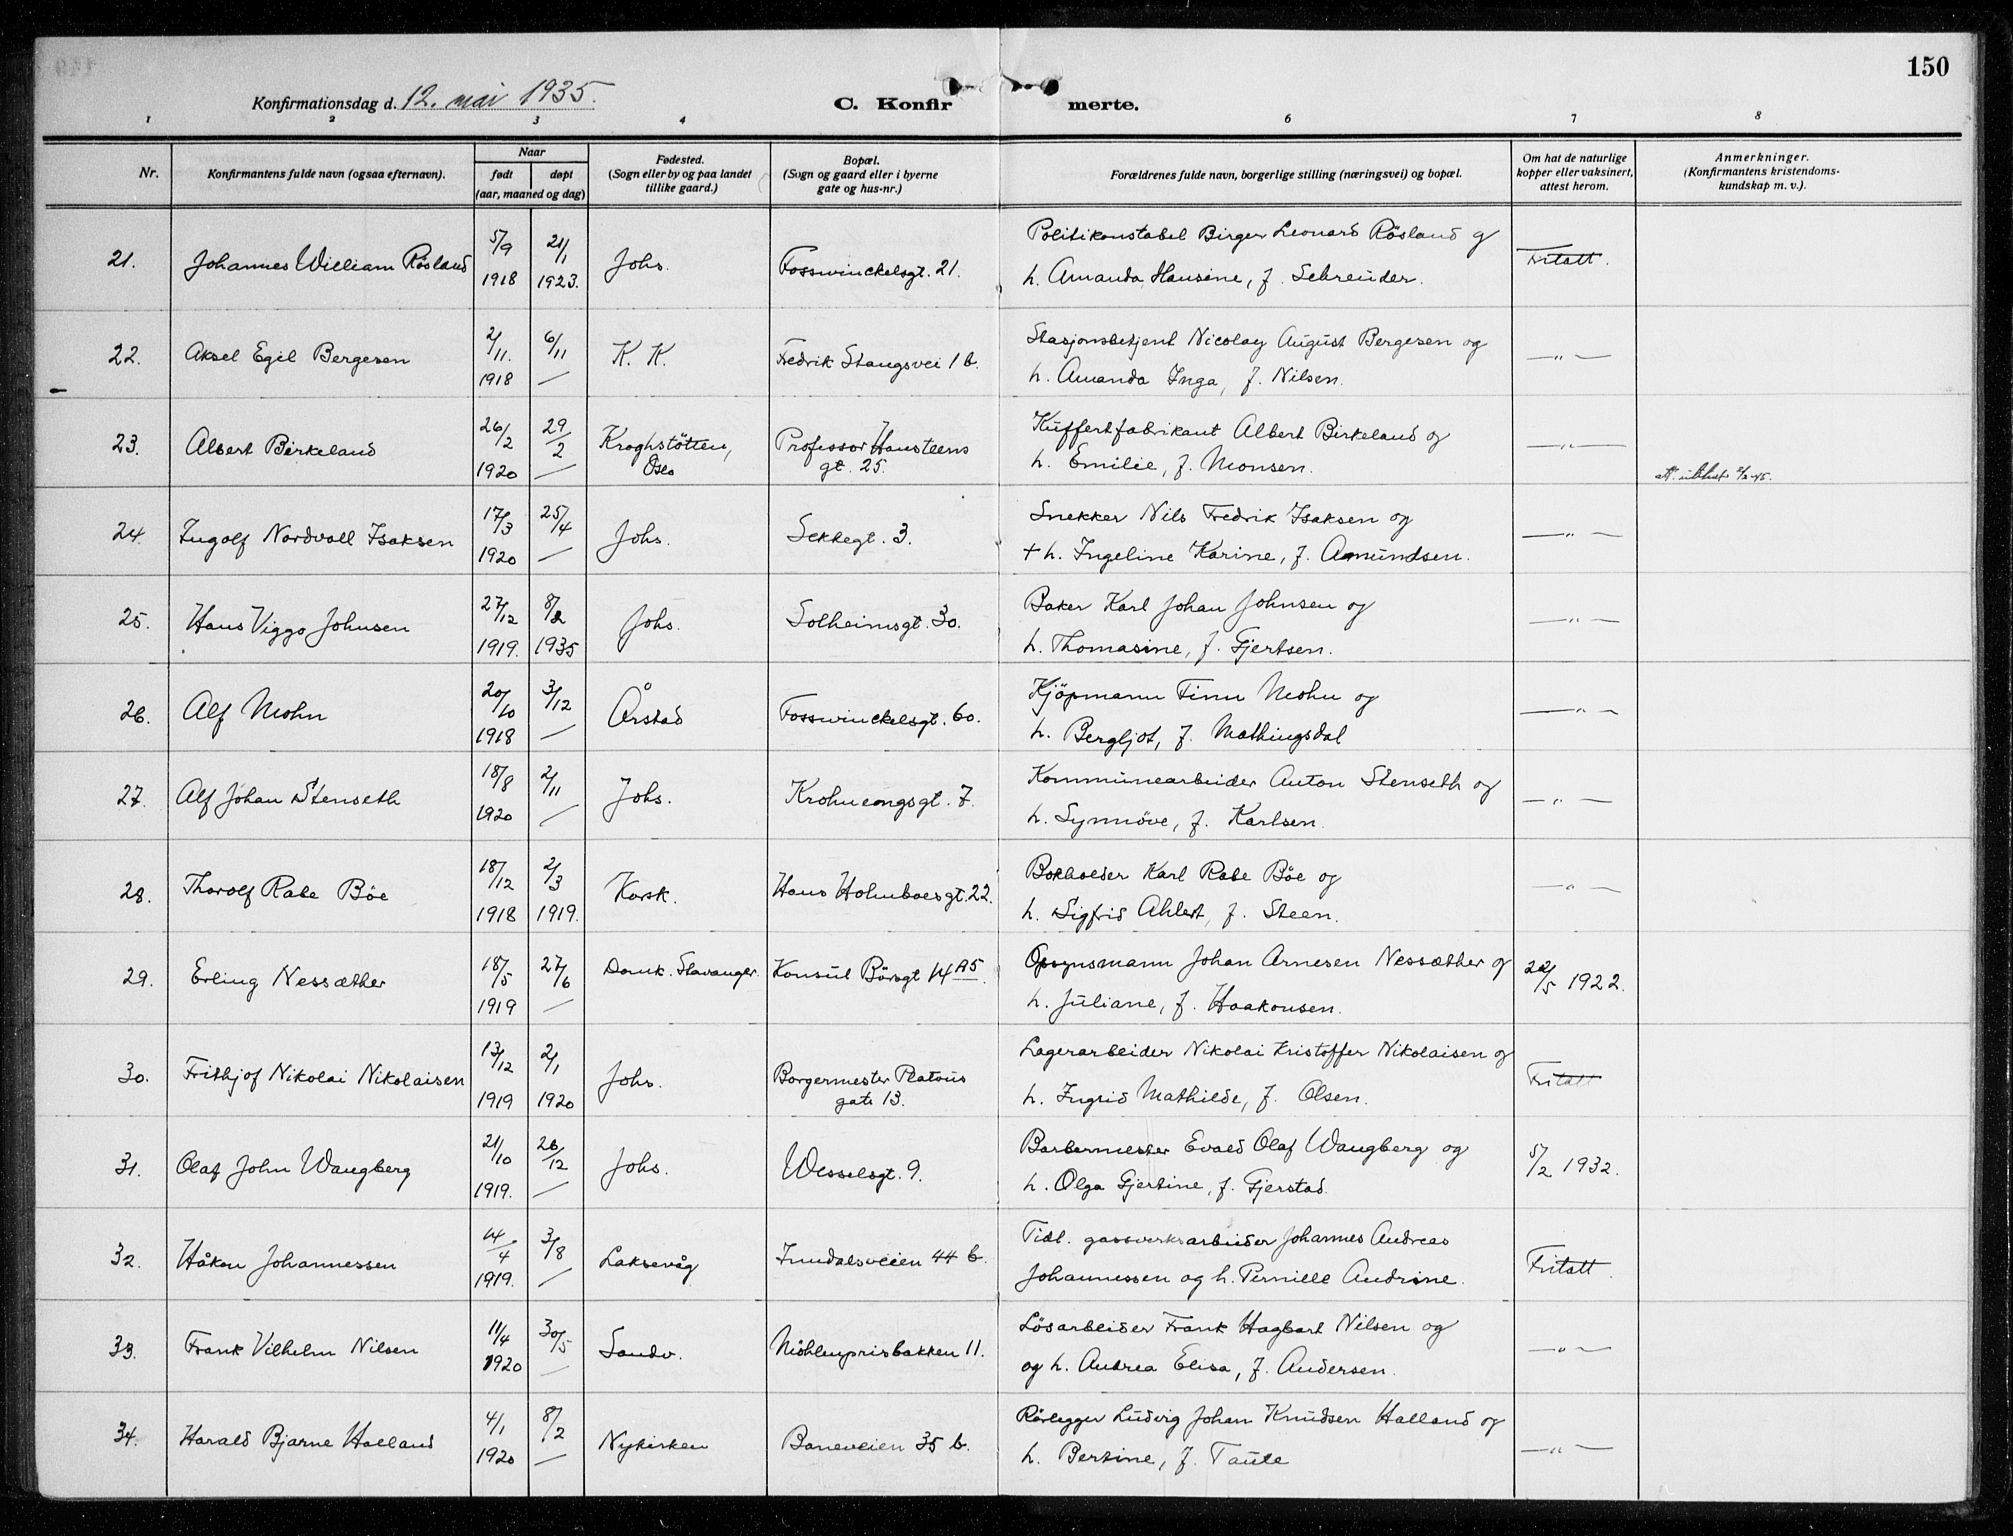 150
Konfirmationsdag d. 12. mai 1935.
C. Konfirmerte.
1 2 3 4 6 7 8
Nr.
Konfirmantens fulde navn (ogsaa efternavn).
Naar
født
døpt
(aar, maaned og dag)
Fødested.
(Sogn eller by og paa landet
tillike gaard.)
Bopæl.
(Sogn og gaard eller i byerne
gate og hus-nr.)
Forældrenes fulde navn, borgerlige stilling (næringsvei) og bopæl.
Om hat de naturlige
kopper eller vaksinert,
attest herom.
Anmerkninger.
(Konfirmantens kristendoms-
kundskap m. v.).
21. Johannes William Røsland 5/9 1918 21/1 1923. Johs. Fosswinckelsgt. 21. Politikonstabel Birger Leonard Røsland og
h. Amanda Hansine, f. Schreuder. Fritatt.
22. Aksel Egil Bergesen 2/11. 1918 6/11 — K. K. Fredrik Stangsvei 1 b. Stasjonsbetjent Nicolay August Bergesen og
h. Amanda Inga, f. Nilsen. — " —
23. Albert Birkeland 26/2 1920 29/2 — Kroghstötten, Oslo Professor Hansteens
gt. 25. Kuffertfabrikant Albert Birkeland og
h. Emilie, f. Monsen. — " —
24. Ingolf Nordvall Isaksen 17/3 1920 25/4 — Johs. Sekkegt. 3. Snekker Nils Fredrik Isaksen og
+ h. Ingeline Karine, f. Amundsen. — " —
25. Hans Viggo Johnsen 27/12 1919. 8/2 1935 Johs. Solheimsgt. 30. Baker Karl Johan Johnsen og
h. Thomasine, f. Gjertsen. — " —
26. Alf Mohn 20/10 1918 3/12 — Årstad Fosswinckelsgt. 60. Kjöpmann Finn Mohn og
h. Bergljot, f. Mathingsdal — " —
27. Alf Johan Stenseth 18/8 1920 2/11 — Johs. Krohnengsgt. 7. Kommunearbeider Anton Stenseth og
h. Synnöve, f. Karlsen. — " —
28. Thorolf Rabe Böe 18/12 1918 2/3 1919. Korsk. Hans Holmboesgt. 22. Bokholder Karl Rabe Böe og
h. Sigfrid Ahlert, f. Steen. — " —
29. Erling Nessæther 18/5 1919 27/6 — Domk. Stavanger. Konsul Börsgt 14 A5. Opsynsmann Johan Arnesen Nessæther og
h. Juliane, f. Haakonsen. 22/5 1922.
30. Frithjof Nikolai Nikolaisen 13/12 1919 2/1 1920 Johs. Borgermester Platous
gate 13. Lagerarbeider Nikolai Kristoffer Nikolaisen og
h. Ingrid Mathilde, f. Olsen. Fritatt
31. Olaf John Wangberg 21/10 1919. 26/12 — Johs. Wesselsgt. 9. Barbermester Evald Olaf Wangberg og
h. Olga Gjertine, f. Gjerstad. 5/2 1932.
32. Håkon Johannessen 14/4 1919. 3/8 — Laksevåg Inndalsveien 44 b. Tidl. gassverksarbeider Johannes Andreas
Johannessen og h. Pernille Andrine. Fritatt.
33. Frank Vilhelm Nilsen 11/4 1920 30/5 — Sandv. Möhlenprisbakken 11. Lösarbeider Frank Hagbart Nilsen og
og h. Andrea Elisa, f. Andersen. — " —
34. Harald Bjarne Halland 4/1 1920 8/2 — Nykirken Baneveien 35 b. Rörlegger Ludvig Johan Knudsen Halland og
h. Bertine, f. Taule — " —